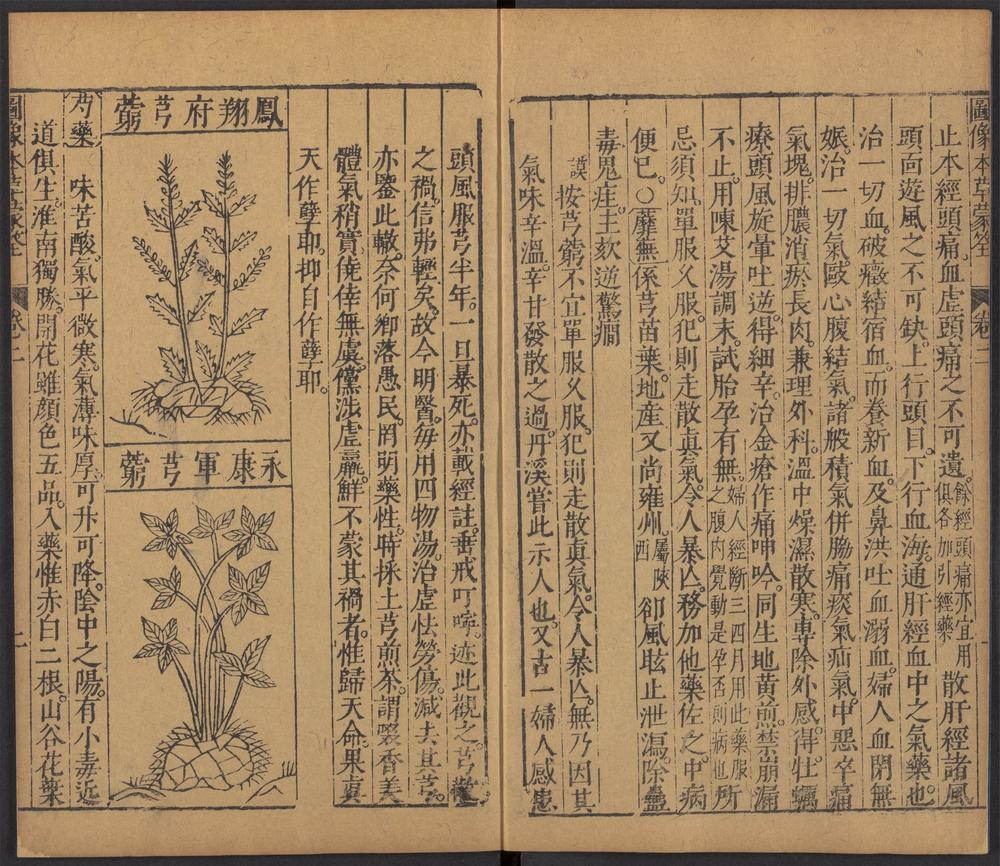 圖像本草蒙筌 卷二 一
止本經頭痛血虛頭痛之不可遺餘經頭痛亦宜用俱各加引經藥散肝經諸風
頭面遊風之不可缺上行頭目下行血海通肝經血中之氣藥也
治一切血破癥結宿血而養新血及鼻洪吐血溺血婦人血閉無
娠治一切氣敺心腹結氣諸般積氣併脇痛痰氣疝氣中惡卒痛
氣塊排膿消瘀長肉兼理外科溫中燥濕散寒專除外感得牡蠣
療頭風旋暈吐逆得細辛治金瘡作痛呻吟同生地黃煎禁崩漏
不止用陳艾湯調末試胎孕有無婦人經斷三四月用此藥服之腹內覺動是孕否則病也所
忌須知單服久服犯則走散真氣令人暴亡務加他藥佐之中病
便已○蘼蕪係芎苗葉地產又尚雍州屬陝西卻風眩止泄瀉除蠱
毒鬼疰主欬逆驚癇
謨按芎藭不宜單服久服犯則走散真氣令人暴亡無乃因其
氣味辛溫辛甘發散之過丹溪嘗此示人也又古一婦人感患
頭風服芎半年一旦暴死亦載經註垂戒叮嚀迹此觀之芎藭
之禍信弗輕矣故今明醫每用四物湯治虛怯勞傷減去其芎
亦鑒此轍奈何鄉落愚民罔明藥性時採土芎煎茶謂啜香美
體氣稍實僥倖無虞儻涉虛羸鮮不蒙其禍者惟歸天命果真
天作孽耶抑自作孽耶
鳳翔府芎藭
永康軍芎藭
芍藥 味苦酸氣平微寒氣薄味厚可升可降陰中之陽有小毒近
道俱生淮南獨勝開花雖顏色五品入藥惟赤白二根山谷花葉
圖像本草蒙筌 卷二 二